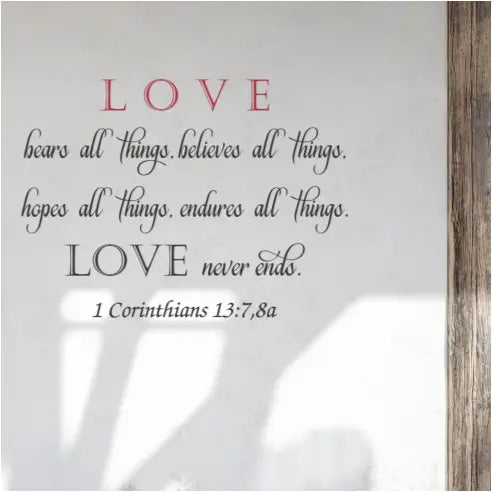 LOVE
bears all things, believes all things,
hopes all things, endures all things.
LOVE never ends.
1 Corinthians 13:7,8a